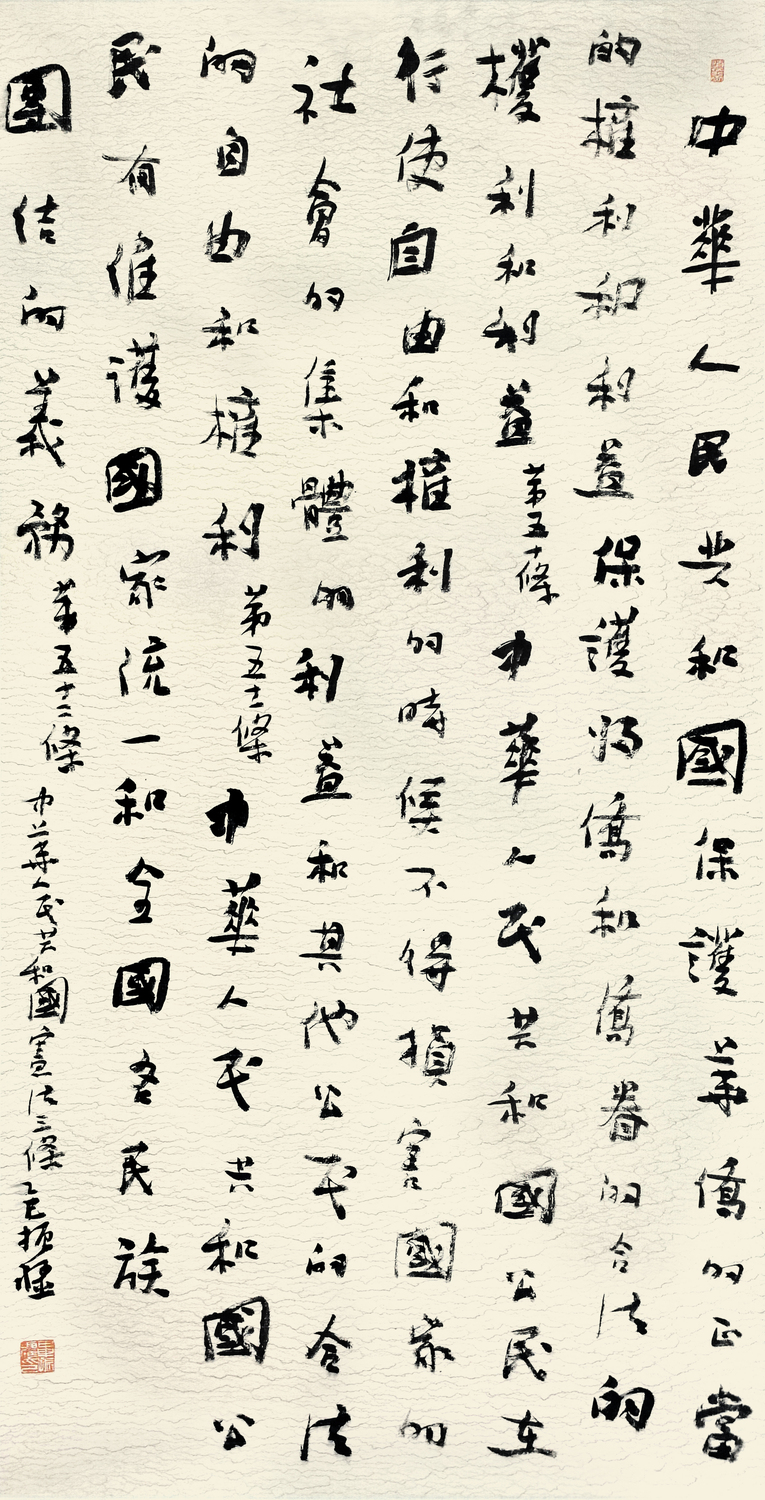 中華人民共和國保護華僑的正當
的權利和利益保護歸僑和僑眷的合法的
權利和利益第五十條中華人民共和國公民在
行使自由和權利的時候不得損害國家的
社會的集體的利益和其他公民的合法
的自由和權利第五十一條中華人民共和國公
民有維護國家統一和全國各民族
團結的義務第五十二條中華人民共和國憲法三條乙巳振